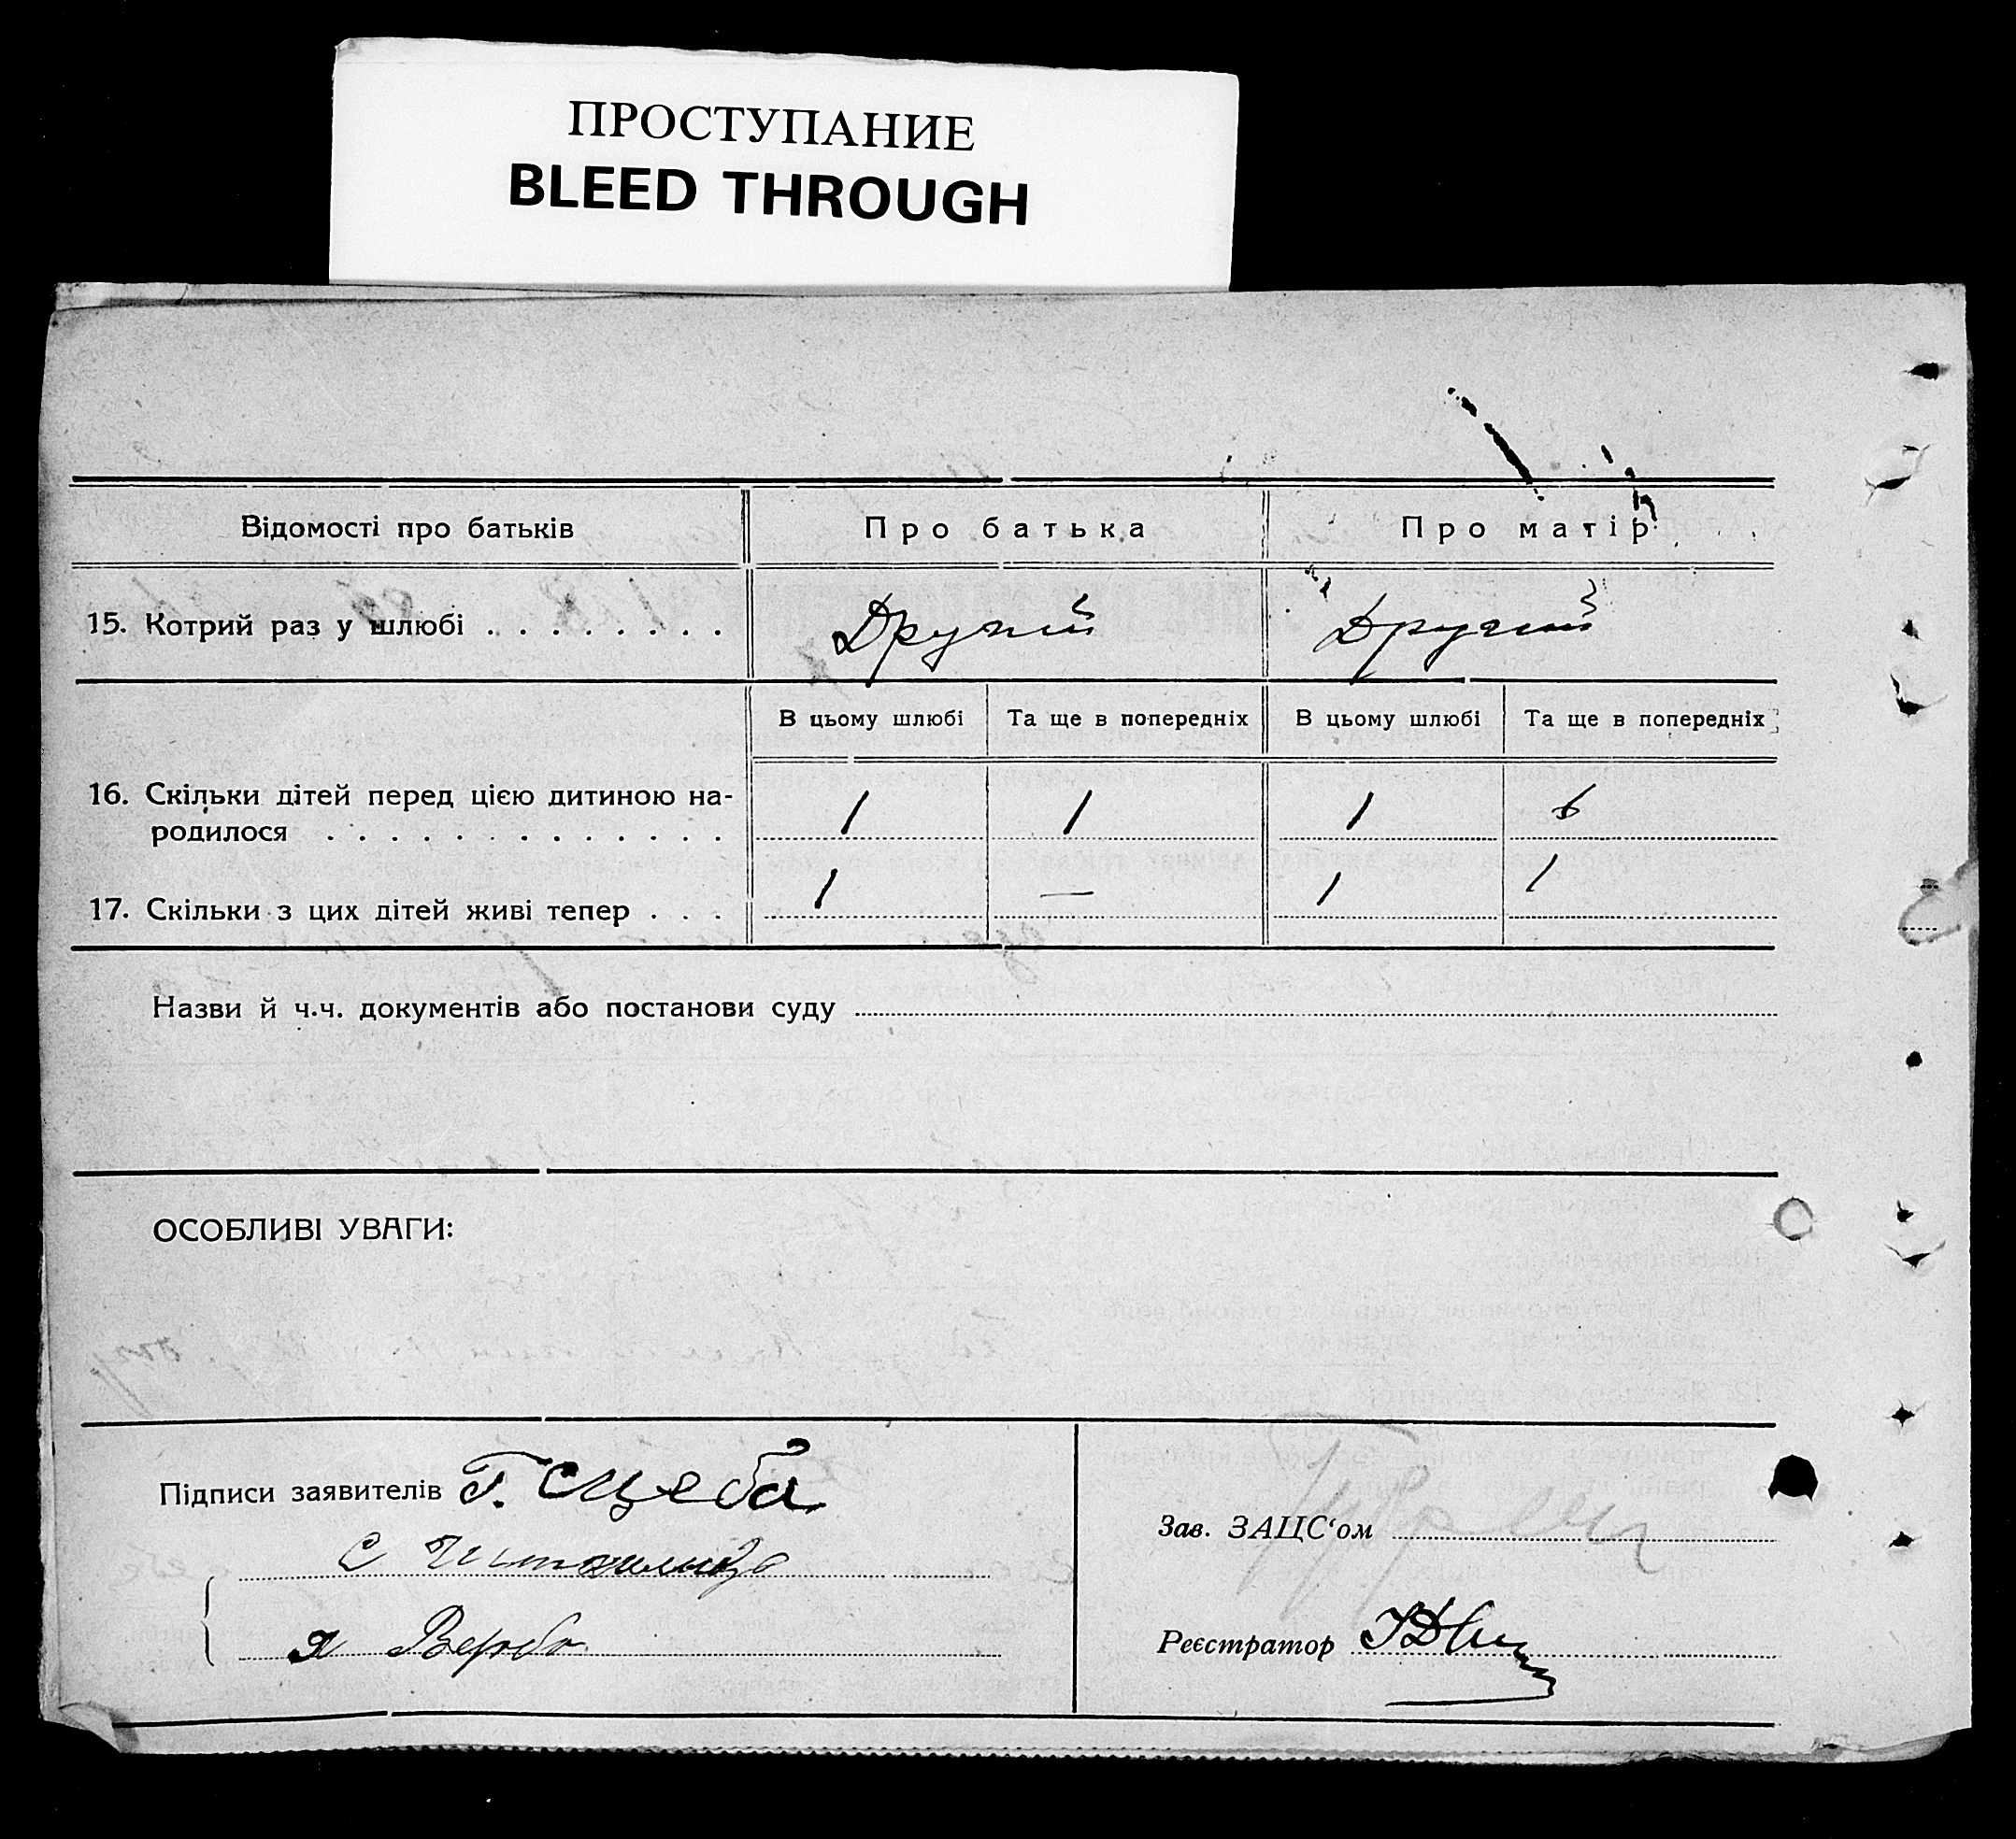 ПРОСТУПАНИЕ
BLEED THROUGH
Відомості про батьків Про батька Про матір
15. Котрий раз у шлюбі . . . . . . . . Другий Другий
В цьому шлюбі Та ще в попередніх В цьому шлюбі Та ще в попередніх
16. Скільки дітей перед цією дитиною на-
родилося . . . . . . . . . . . . . 1 1 1 6
17. Скільки з цих дітей живі тепер . . . 1 — 1 1
Назви й ч.ч. документів або постанови суду
ОСОБЛИВІ УВАГИ:
Підписи заявителів Г.
Зав. ЗАЦС‘ом
я Верба
Реєстратор